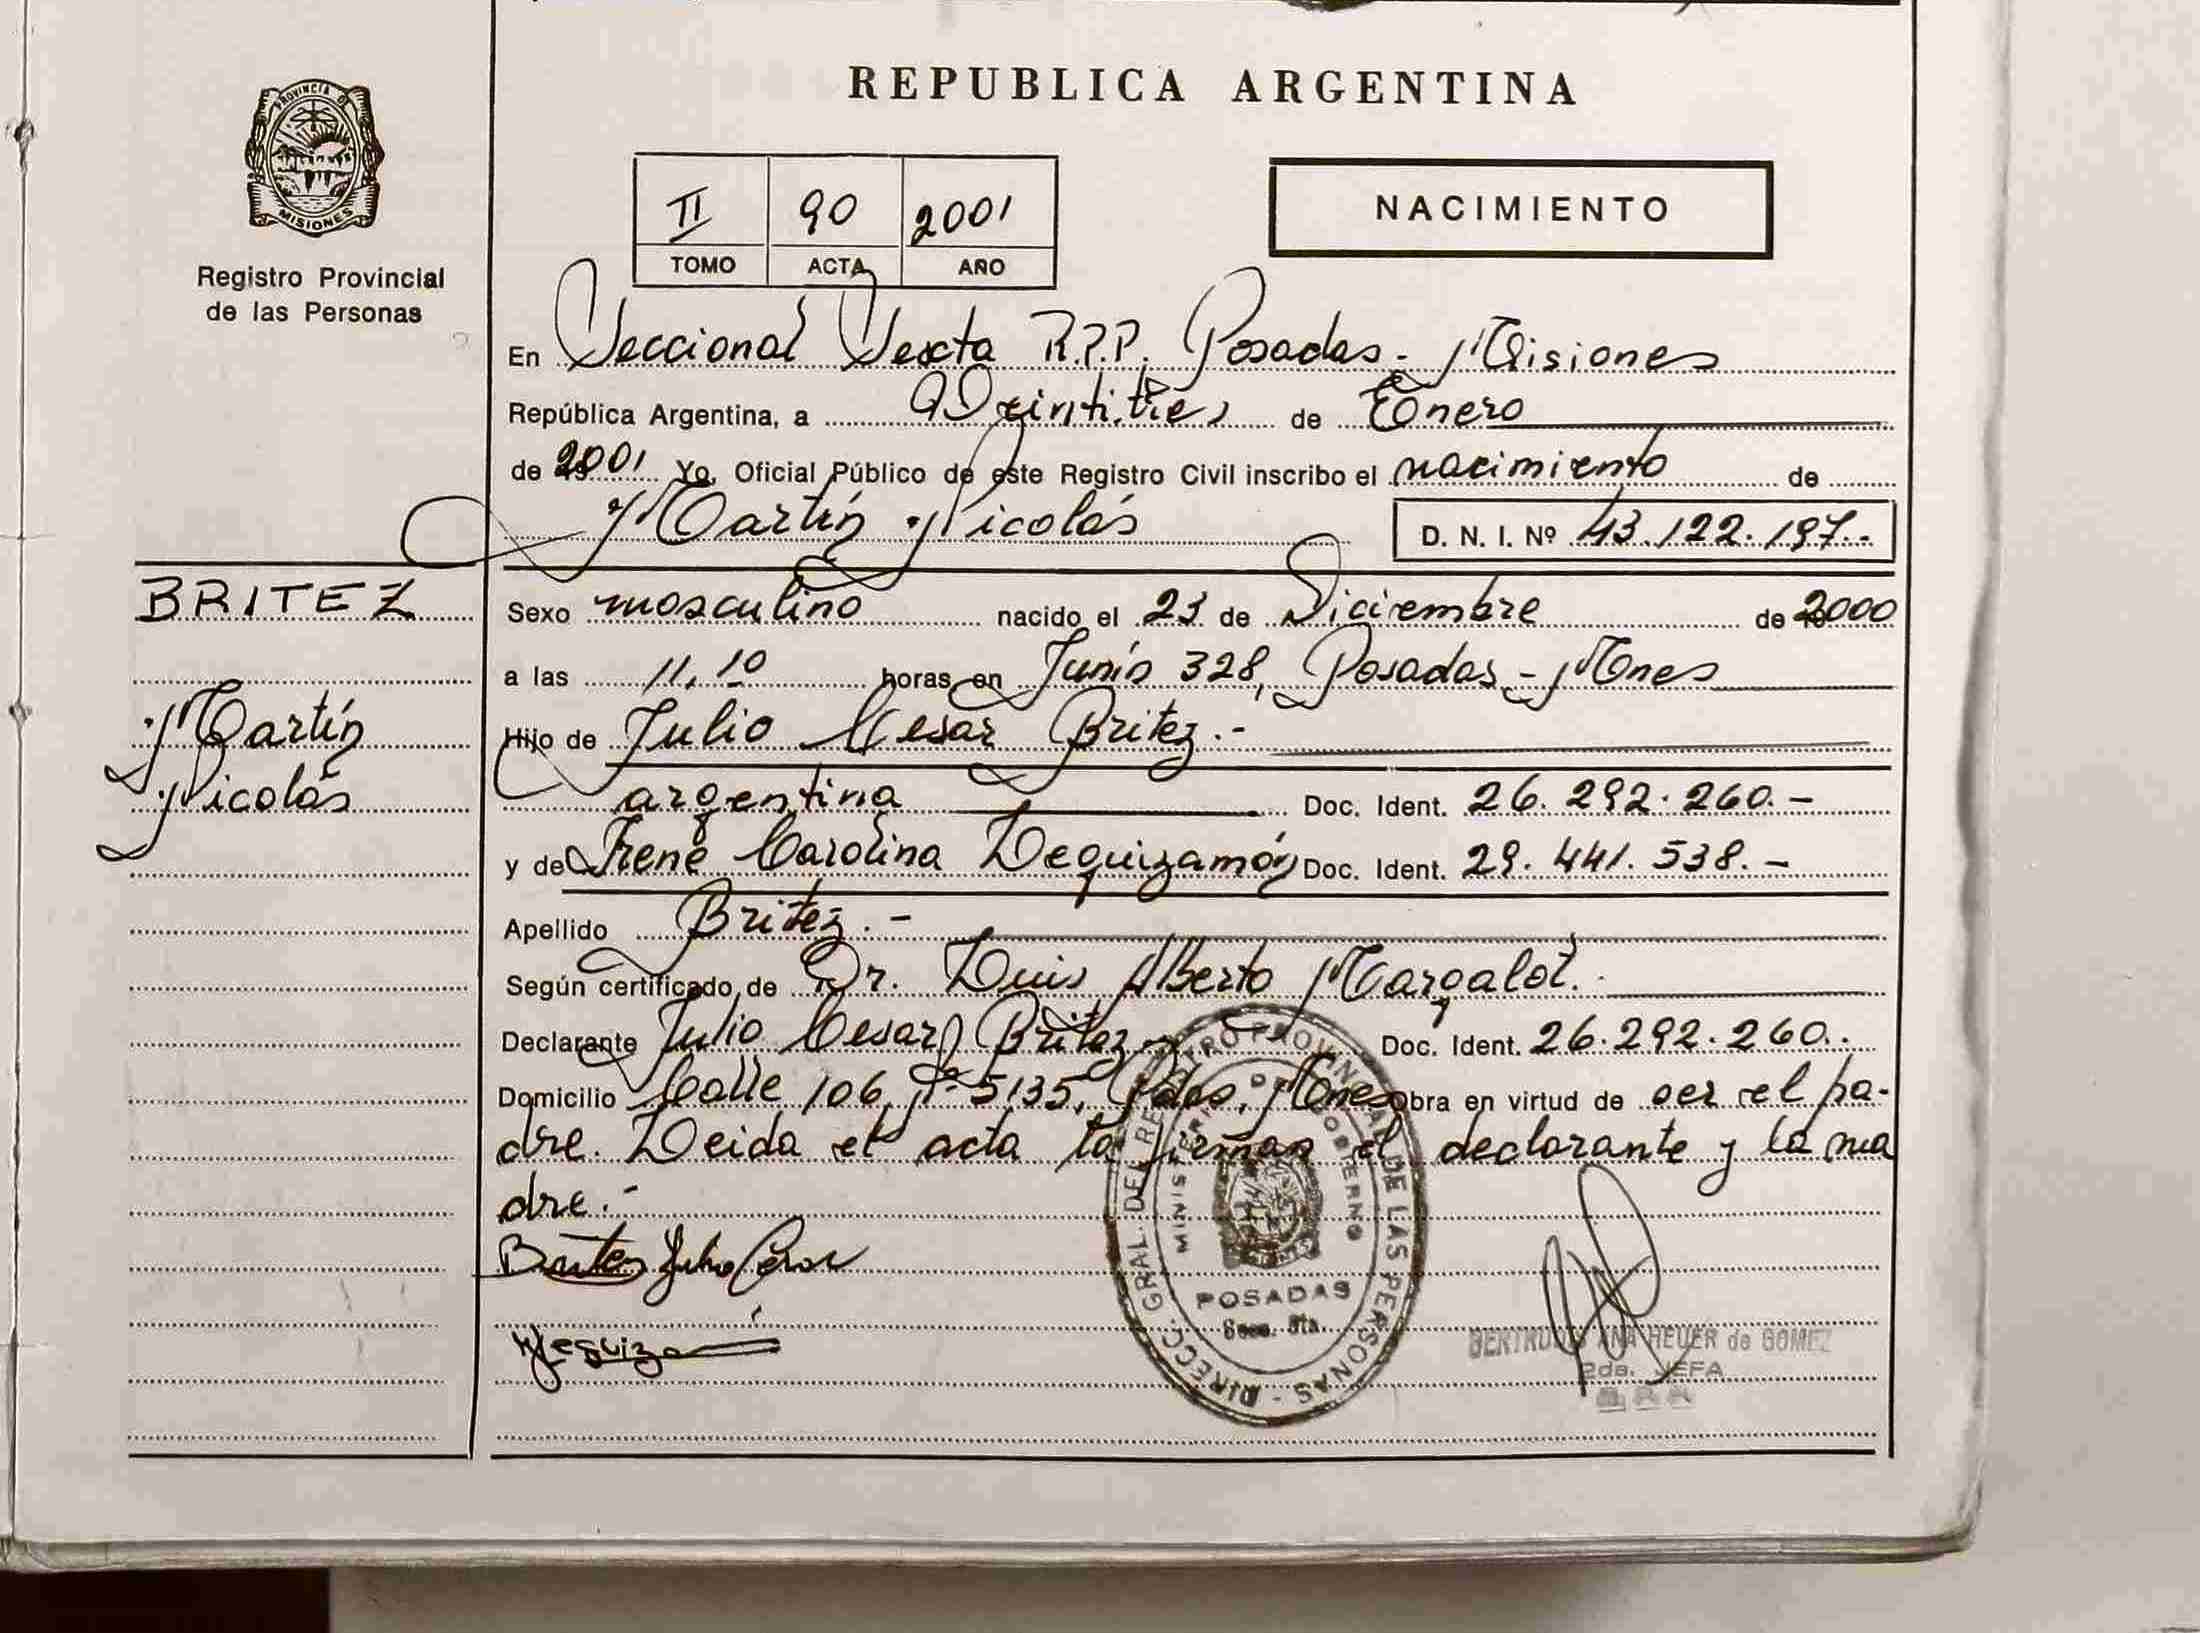 REPUBLICA ARGENTINA
PROVINCIA DE
MISIONES
Registro Provincial
de las Personas
II 90 2001
TOMO ACTA AÑO
NACIMIENTO
En Seccional Sexta R.P.P. Posadas - Misiones
República Argentina, a Veintitres de Enero
de 2001 Yo, Oficial Público de este Registro Civil inscribo el nacimiento de
Martín Nicolás D. N. I. Nº 43.122.197.-
BRITEZ
Martín
Nicolás
Sexo masculino nacido el 23 de Diciembre de 2000
a las 11,10 horas en Junín 328, Posadas - Mnes
Hijo de Julio Cesar Britez.-
argentina Doc. Ident. 26.292.260.-
y de Irene Carolina Leguizamón Doc. Ident. 29.441.538.-
Apellido Britez.-
Según certificado de Dr. Luis Alberto Margalot.
Declarante Julio Cesar Britez Doc. Ident. 26.292.260.-
Domicilio Calle 106, Nº 5135, Pdas, Mnes Obra en virtud de ser el pa-
dre. Leida el acta la firman el declarante y la ma
dre.-
Britez Julio Cesar
DIRECC. GRAL. DEL REGISTRO PROVINCIAL DE LAS PERSONAS
MINISTERIO DE GOBIERNO
POSADAS
Secc. 6ta.
GERTRUDIS ANA HEUER de GOMEZ
2da. JEFA